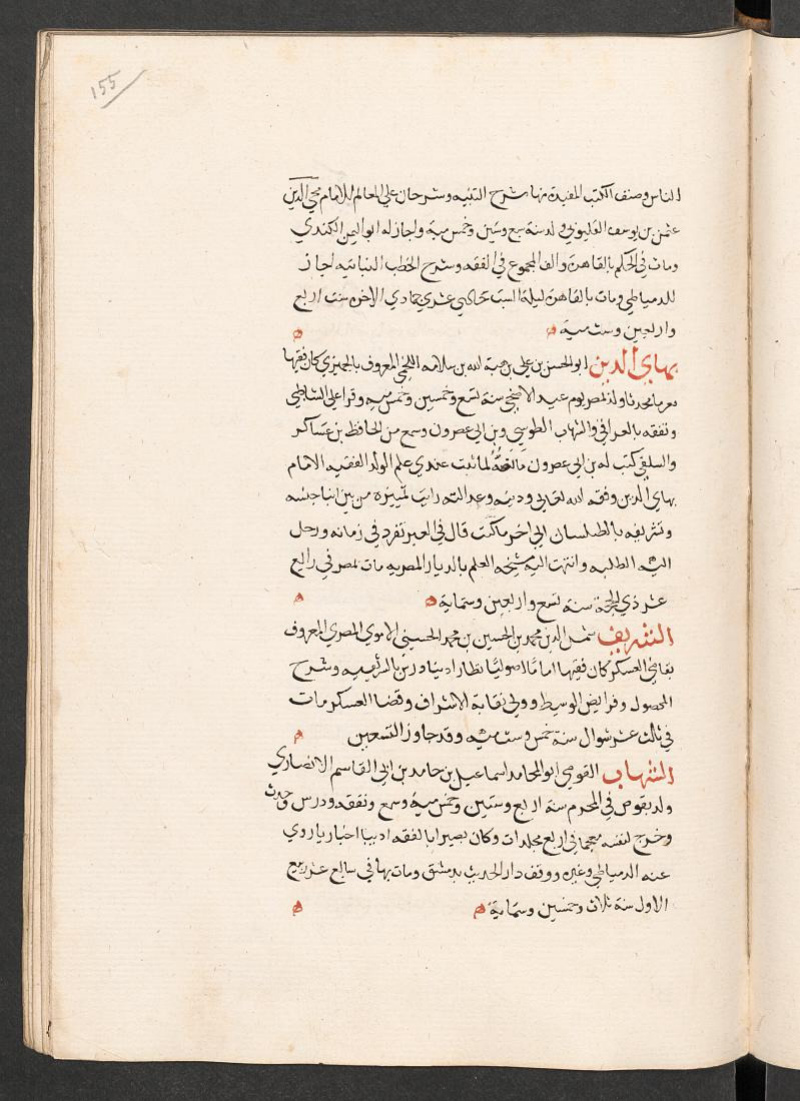 155
الناس وصنف الكتب المفيدة منها شرح التنبيه وشرحان علي المعالم للامام محي الدين
عثمن بن يوسف القليوبي ولد سنة سبع وستين وخمس مية واجاز له ابو اليمن الكندي
ومات في الحكم بالقاهرة والف المجموع في الفقه وشرح الخطب النباتيه اجاز
للدمياطي ومات بالقاهرة ليلة السبت حادي عشري جمادي الاخره سنت اربع
واربعين وست مية ه ه
بهاي الدين ابو الحسن بن علي بن هبة الله بن سلامه اللخمي المعروف بالجميزي كان فقيها
مقريا محدثا ولد بمصر يوم عيد الاضحي سنة تسع وخمسين وخمس ميه وقرا علي الشاطبي
وتفقه بالعراقي والشهاب الطوسي وبن ابي عصرون وسمع من الحافظ بن عساكر
والسلفي كتب له بن ابي عصرون ما لفظه لما ثبت عندي علم الولد الفقيه الامام
بهاي الدين وفقه الله تعالي ودينه وعدالته رايت تمييزه من بين ابنا جنسه
وتشريفه بالطيلسان الي اخر ما كتب قال في العبر تفرد في زمانه ورحل
اليه الطلبه وانتهت اليه مشيخه العلم بالديار المصريه مات بمصر في رابع
عشر ذي الحجة سنة تسع واربعين وستماية ه ه
الشريف شمس الدين محمد بن الحسين بن محمد الحسيني الاموي المصري المعروف
بقاضي العسكر كان فقيها اماما اصوليا نظارا دينا درس بالشريفيه وشرح
المحصول وفرايض الوسيط وولي نقابة الاشراف وقضا العسكر مات
في ثالث عشر شوال سنة خمس وست ميه وقد جاوز التسعين ه
الشهاب القوصي ابو المحامد اسماعيل بن حامد بن ابي القاسم الانصاري
ولد بقوص في المحرم سنة اربع وستين وخمس مية وسمع وتفقه ودرس وحدث
وخرج لنفسه معجما في اربع مجلدات وكان بصيرا بالفقه اديبا اخباريا روي
عنه الدمياطي وغيره ووقف دار الحديث بدمشق ومات بها في سابع عشر ربيع
الاول سنة ثلاث وخمسين وستماية ه ه